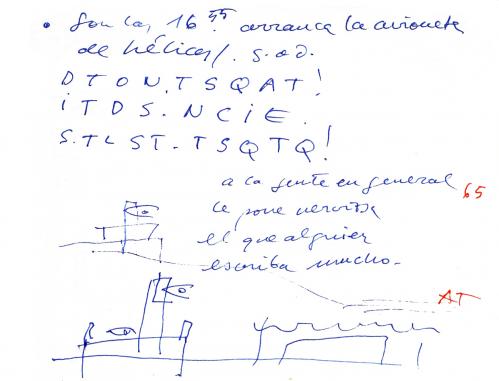 • Son las 16 55. arranca la avioneta
de hélices/. s.o.d.
D T O N. T S Q A T !
i T D S. N C i E.
S. T L S T - T S Q T Q !
a la gente en general
65
le pone nerviosa
el que alguien
escriba mucho.
T
AT